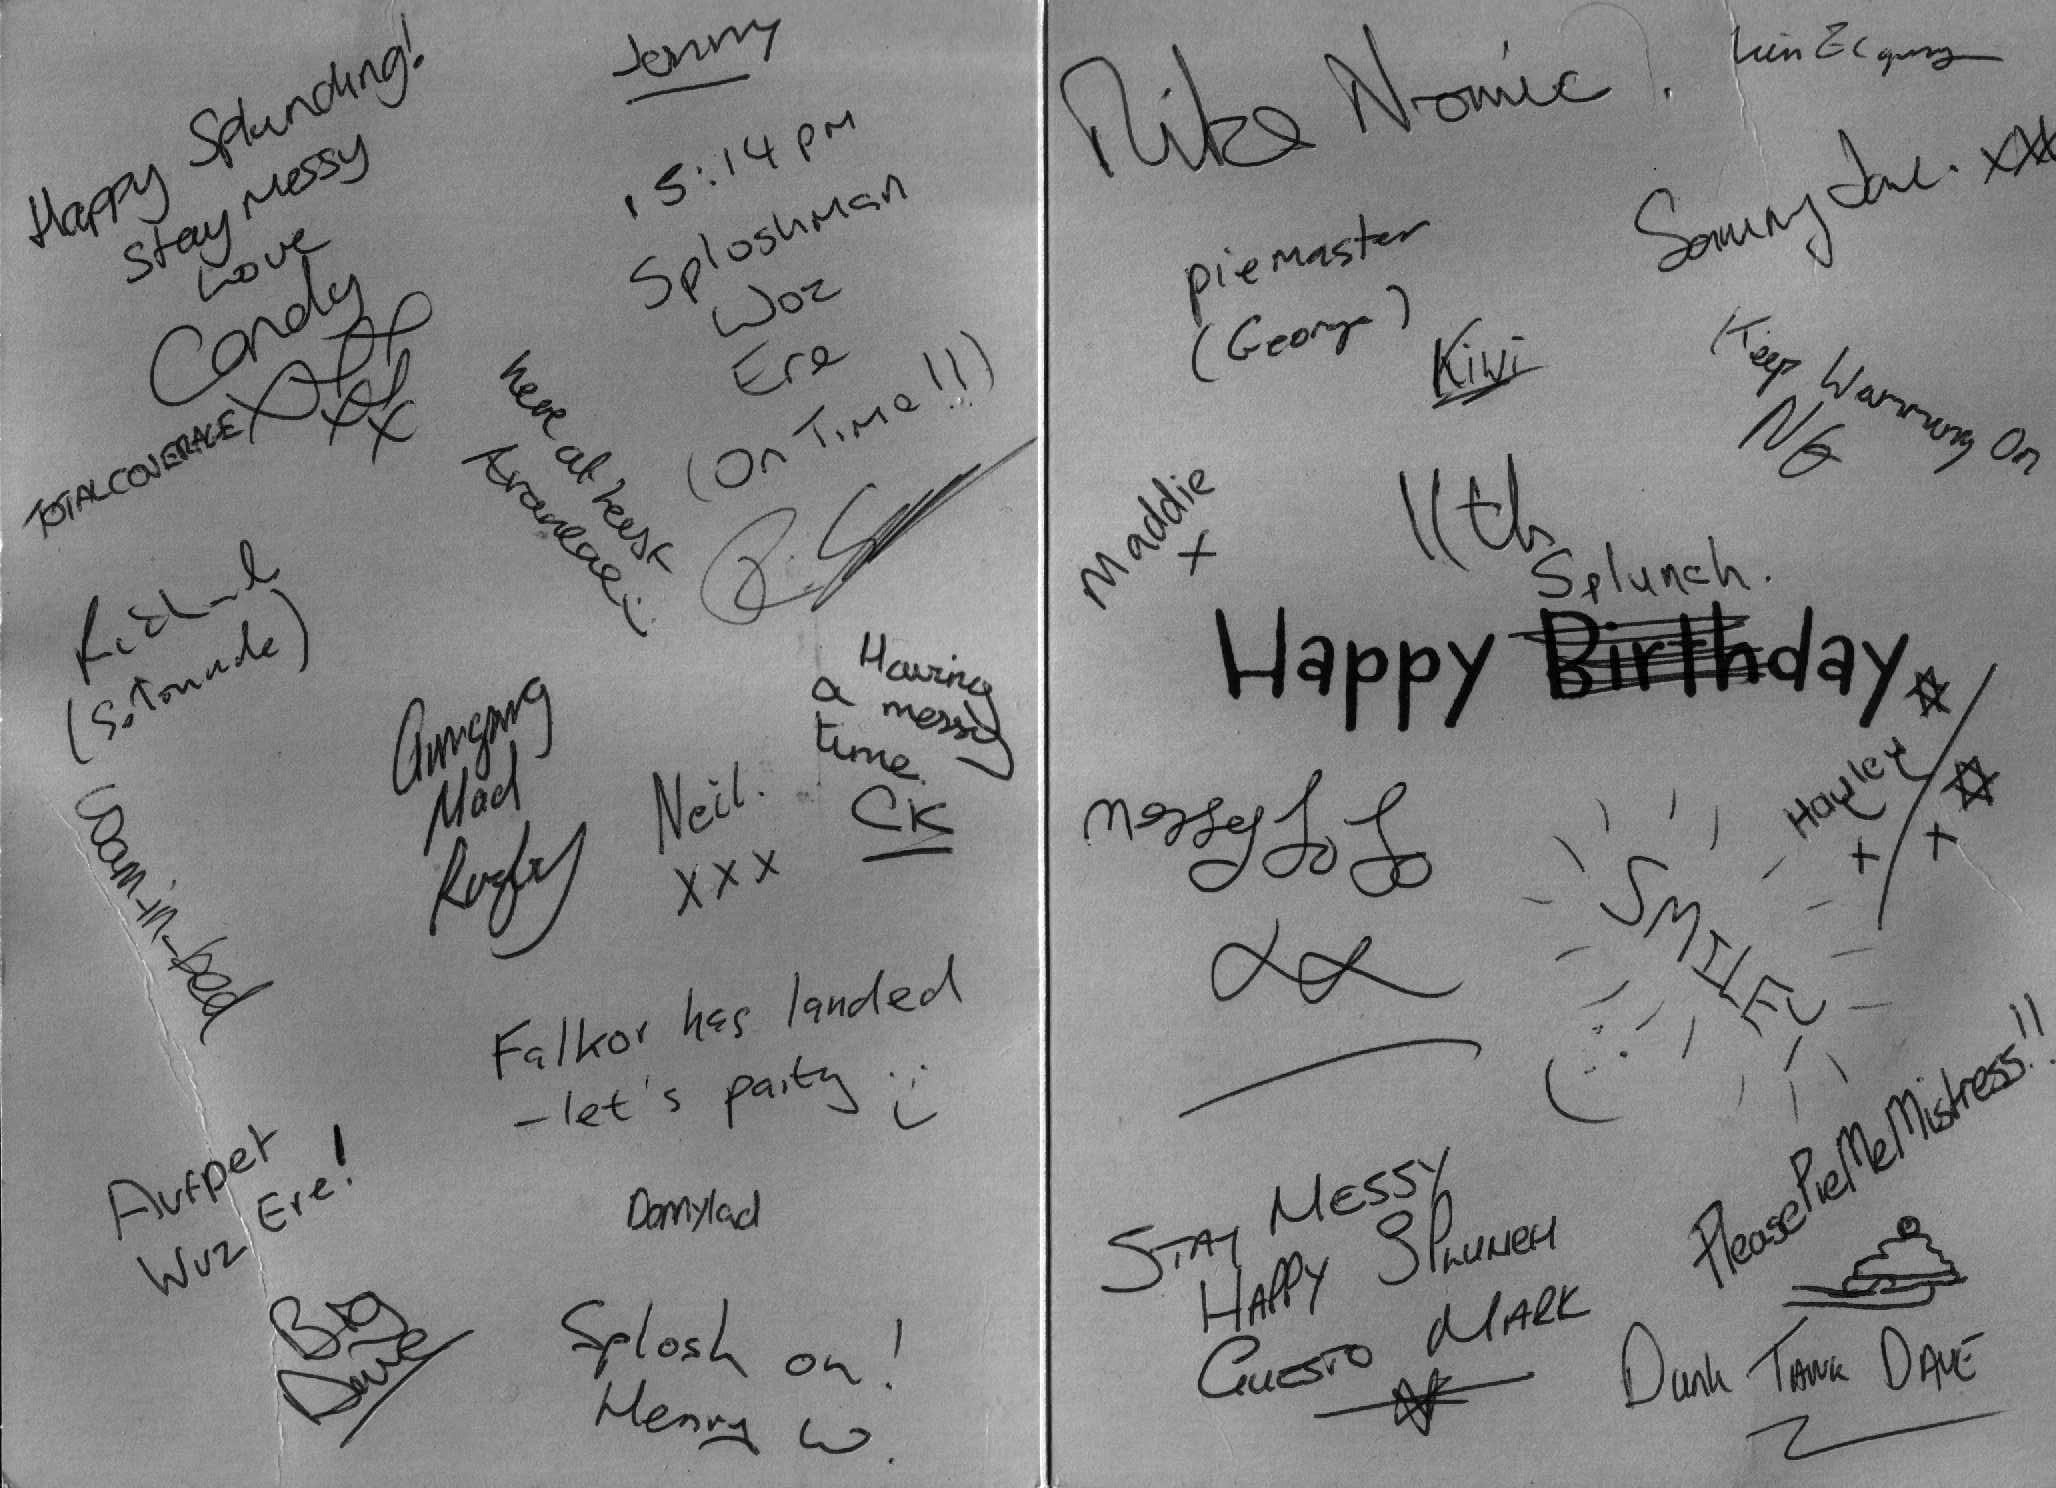 Happy Splunching!
Stay Messy
Love
Candy
xxx
TOTALCOVERAGE
Jonny
15:14 PM
Sploshman
Woz
Ere
(On Time!!)
here at least
Richard
Gunging
Mad
Rugby
Neil.
xxx
Having
a messy
time.
CK
Falkor has landed
-let's party :)
Avrpet
Wuz Ere!
Donnylad
Big
Dave
Splosh on!
Henry W.
Mike
SammyJane. xxx
piemaster
(George)
Kiwi
Keep Wamming On
NG
Maddie
x
11th
Splunch.
Happy Birthday
Hayley
x x
messyJoJo
xx
SMILE
PleasePieMeMistress!!
Stay Messy
Happy Splunch
Guesto Mark
Dunk Tank Dave